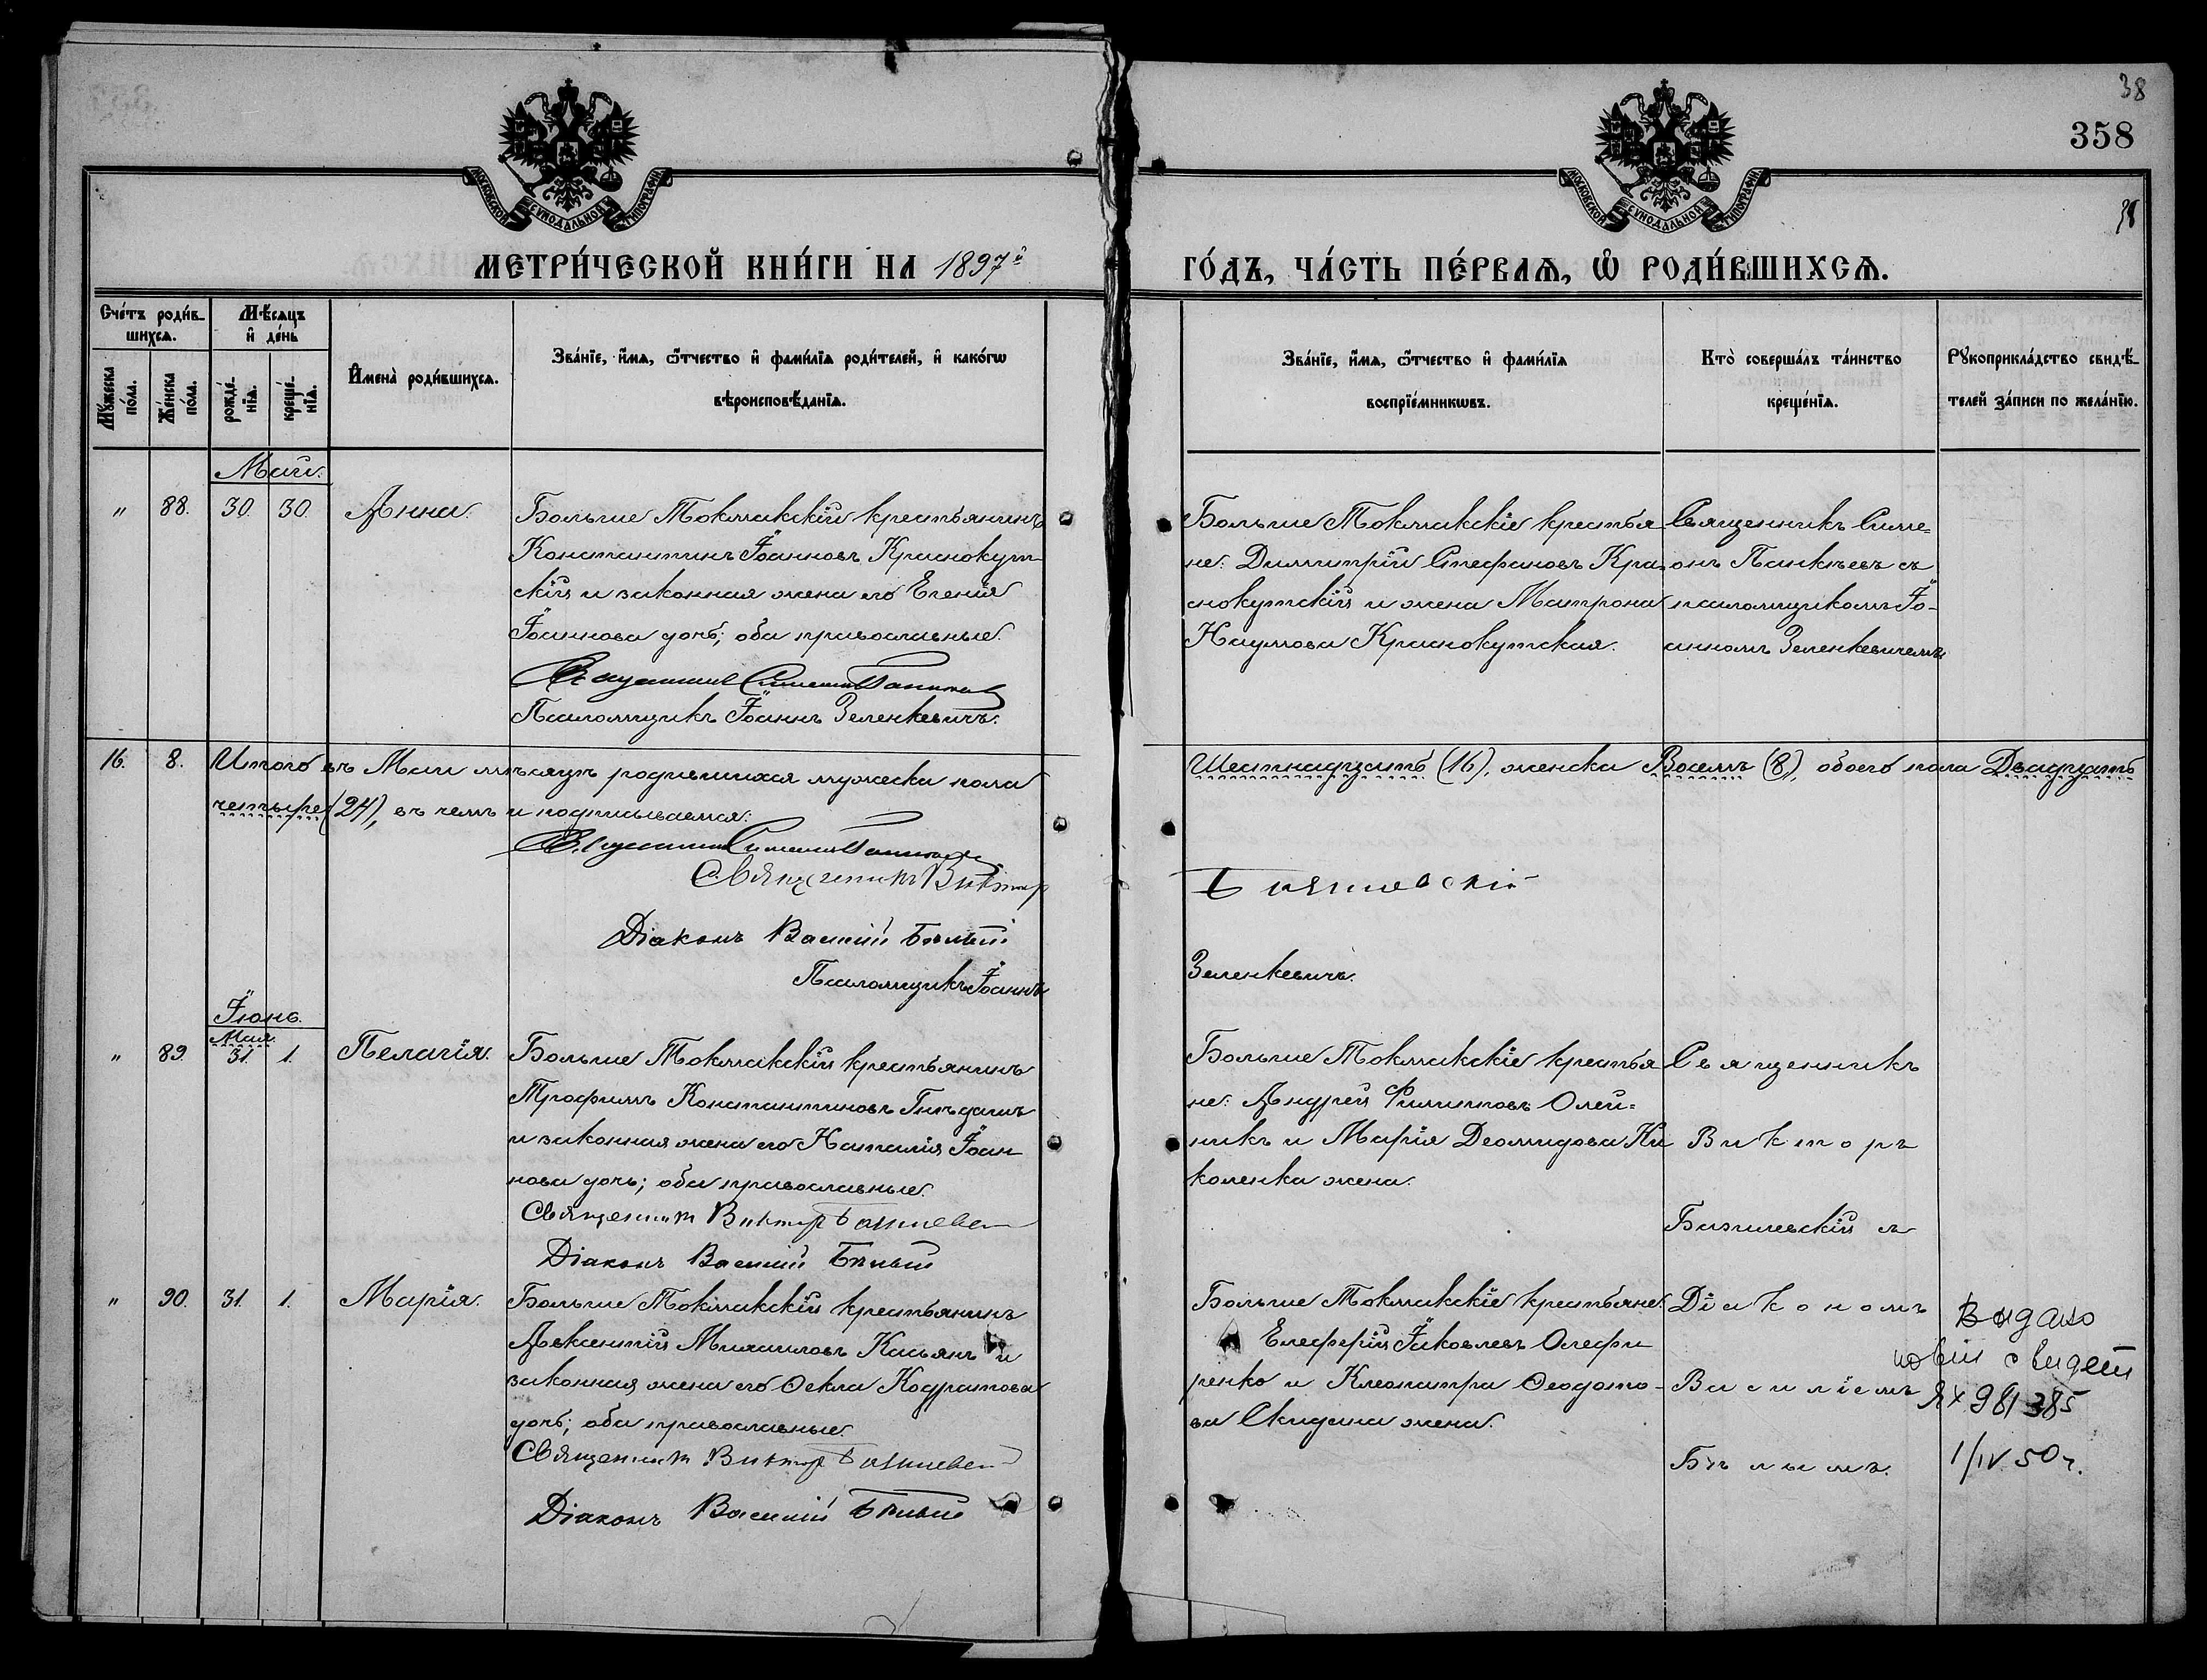 38
358
38
МОСКОВСКОЙ СѴНОДАЛЬНОЙ ТИПОГРАФІИ
МОСКОВСКОЙ СѴНОДАЛЬНОЙ ТИПОГРАФІИ
МЕТРИ́ЧЕСКОЙ КНИ́ГИ НА 1897й
ГО́ДЪ, ЧА́СТЬ ПЕ́РВАѦ, Ѡ҆ РОДИ́ВШИХСѦ.
Сче́тъ роди́в-
шихсѧ.
Мѣ́сѧцъ
и҆ де́нь
И҆мена̀ роди́вшихсѧ.
Зва́нїе, и҆́мѧ, ѻ҆́тчество и҆ фами́лїѧ роди́телей, и҆ како́гѡ
вѣроисповѣ́данїѧ.
Мꙋ́жеска
по́ла.
Же́нска
по́ла.
рожде́-
нїѧ.
креще́-
нїѧ.
Зва́нїе, и҆́мѧ, ѻ҆́тчество и҆ фами́лїѧ
воспрїе́мникѡвъ.
Кто̀ соверша́лъ та́инство
креще́нїѧ.
Рꙋкоприкла́дство свидѣ́-
телей за́писи по жела́нїю.
Май.
" 88. 30. 30. Анна.
Больше Токмакскій крестьянинъ
Константинъ Іоанновъ Краснокут-
скій и законная жена его Евгенія
Іоаннова дочь; оба православные.
Священник Симеон Панкеев
Псаломщикъ Іоаннъ Зеленкевичъ.
Больше Токмакскіе крестья
не: Димитрій Стефановъ Кра-
снокутскій и жена Матрона
Наумова Краснокутская.
Священникъ Симе-
онъ Панкѣевъ съ
псаломщикомъ Іо-
анномъ Зеленкевичемъ
16. 8. Итого въ Маи мѣсяцѣ родившихся мужеска пола
Шестнадцать (16), женска Восемь (8), обоего пола Двадцать
четыре (24), въ чемъ и подписываемся:
Священник Симеон Панкеев
Священникъ Виктор
Базилевскій
Діаконъ Василій Бѣлый
Псаломщикъ Іоаннъ
Зеленкевичъ.
Іюнь.
Мая.
" 89. 31. 1. Пелагія.
Больше Токмакскій крестьянинъ
Трофимъ Константиновъ Гнѣдашъ
и законная жена его Наталія Іоан-
нова дочь; оба православные.
Священник Виктор Базилевск
Діаконъ Василій Бѣлый
Больше Токмакскіе крестья
не: Андрей Филипповъ Олей-
никъ и Марія Деомидова Ни
коленка жена.
Священникъ
Викторъ
Базилевскій съ
" 90. 31. 1. Марія.
Больше Токмакскій крестьянинъ
Авксентій Михаиловъ Касьянъ и
законная жена его Ѳекла Кодратова
дочь; оба православные.
Священник Виктор Базилевск
Діаконъ Василій Бѣлый
Больше Токмакскіе крестьяне:
Елевферій Іаковлевъ Олефи
ренко и Клеопатра Ѳеодото-
ва Скидана жена.
Діакономъ
Василіемъ
Бѣлымъ.
Видано
новій свидет
981385
1/IV 50 г.